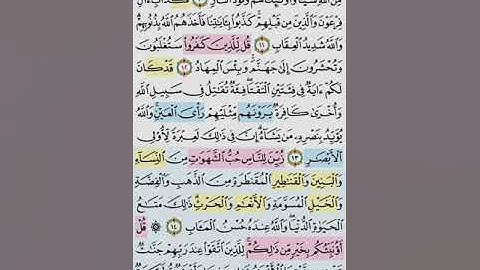 مِّنَ ٱللَّهِ شَيْـًٔا ۖ وَأُو۟لَـٰٓئِكَ هُمْ وَقُودُ ٱلنَّارِ ١٠ كَدَأْبِ ءَالِ
فِرْعَوْنَ وَٱلَّذِينَ مِن قَبْلِهِمْ ۚ كَذَّبُوا۟ بِـَٔايَـٰتِنَا فَأَخَذَهُمُ ٱللَّهُ بِذُنُوبِهِمْ ۗ
وَٱللَّهُ شَدِيدُ ٱلْعِقَابِ ١١ قُل لِّلَّذِينَ كَفَرُوا۟ سَتُغْلَبُونَ
وَتُحْشَرُونَ إِلَىٰ جَهَنَّمَ ۚ وَبِئْسَ ٱلْمِهَادُ ١٢ قَدْ كَانَ
لَكُمْ ءَايَةٌ فِى فِئَتَيْنِ ٱلْتَقَتَا ۖ فِئَةٌ تُقَـٰتِلُ فِى سَبِيلِ ٱللَّهِ
وَأُخْرَىٰ كَافِرَةٌ يَرَوْنَهُم مِّثْلَيْهِمْ رَأْىَ ٱلْعَيْنِ ۚ وَٱللَّهُ
يُؤَيِّدُ بِنَصْرِهِۦ مَن يَشَآءُ ۗ إِنَّ فِى ذَٰلِكَ لَعِبْرَةً لِّأُو۟لِى
ٱلْأَبْصَـٰرِ ١٣ زُيِّنَ لِلنَّاسِ حُبُّ ٱلشَّهَوَٰتِ مِنَ ٱلنِّسَآءِ
وَٱلْبَنِينَ وَٱلْقَنَـٰطِيرِ ٱلْمُقَنطَرَةِ مِنَ ٱلذَّهَبِ وَٱلْفِضَّةِ
وَٱلْخَيْلِ ٱلْمُسَوَّمَةِ وَٱلْأَنْعَـٰمِ وَٱلْحَرْثِ ۗ ذَٰلِكَ مَتَـٰعُ
ٱلْحَيَوٰةِ ٱلدُّنْيَا ۖ وَٱللَّهُ عِندَهُۥ حُسْنُ ٱلْمَـَٔابِ ١٤ ۞ قُلْ
أَؤُنَبِّئُكُم بِخَيْرٍ مِّن ذَٰلِكُمْ ۚ لِلَّذِينَ ٱتَّقَوْا۟ عِندَ رَبِّهِمْ جَنَّـٰتٌ